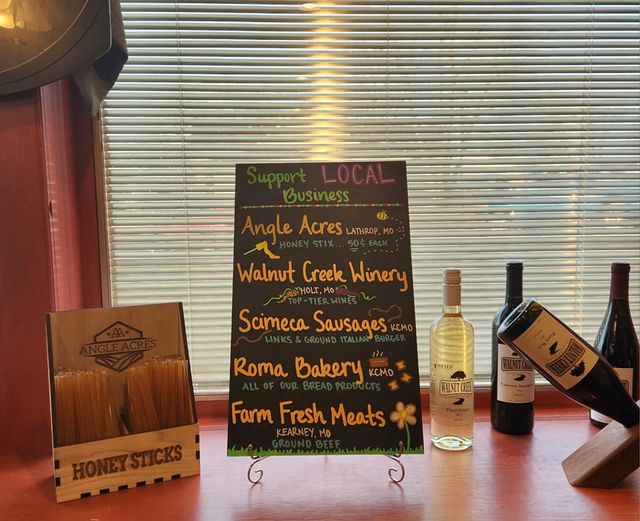 Support LOCAL
Business
Angle Acres LATHROP, MO
HONEY STIX... 50¢ EACH
Walnut Creek Winery
HOLT, MO
TOP-TIER WINES
Scimeca Sausages KCMO
LINKS & GROUND ITALIAN BURGER
Roma Bakery KCMO
ALL OF OUR BREAD PRODUCTS
Farm Fresh Meats
KEARNEY, MO
GROUND BEEF
AA
ANGLE ACRES
HONEY STICKS
WALNUT CREEK
WALNUT CREEK